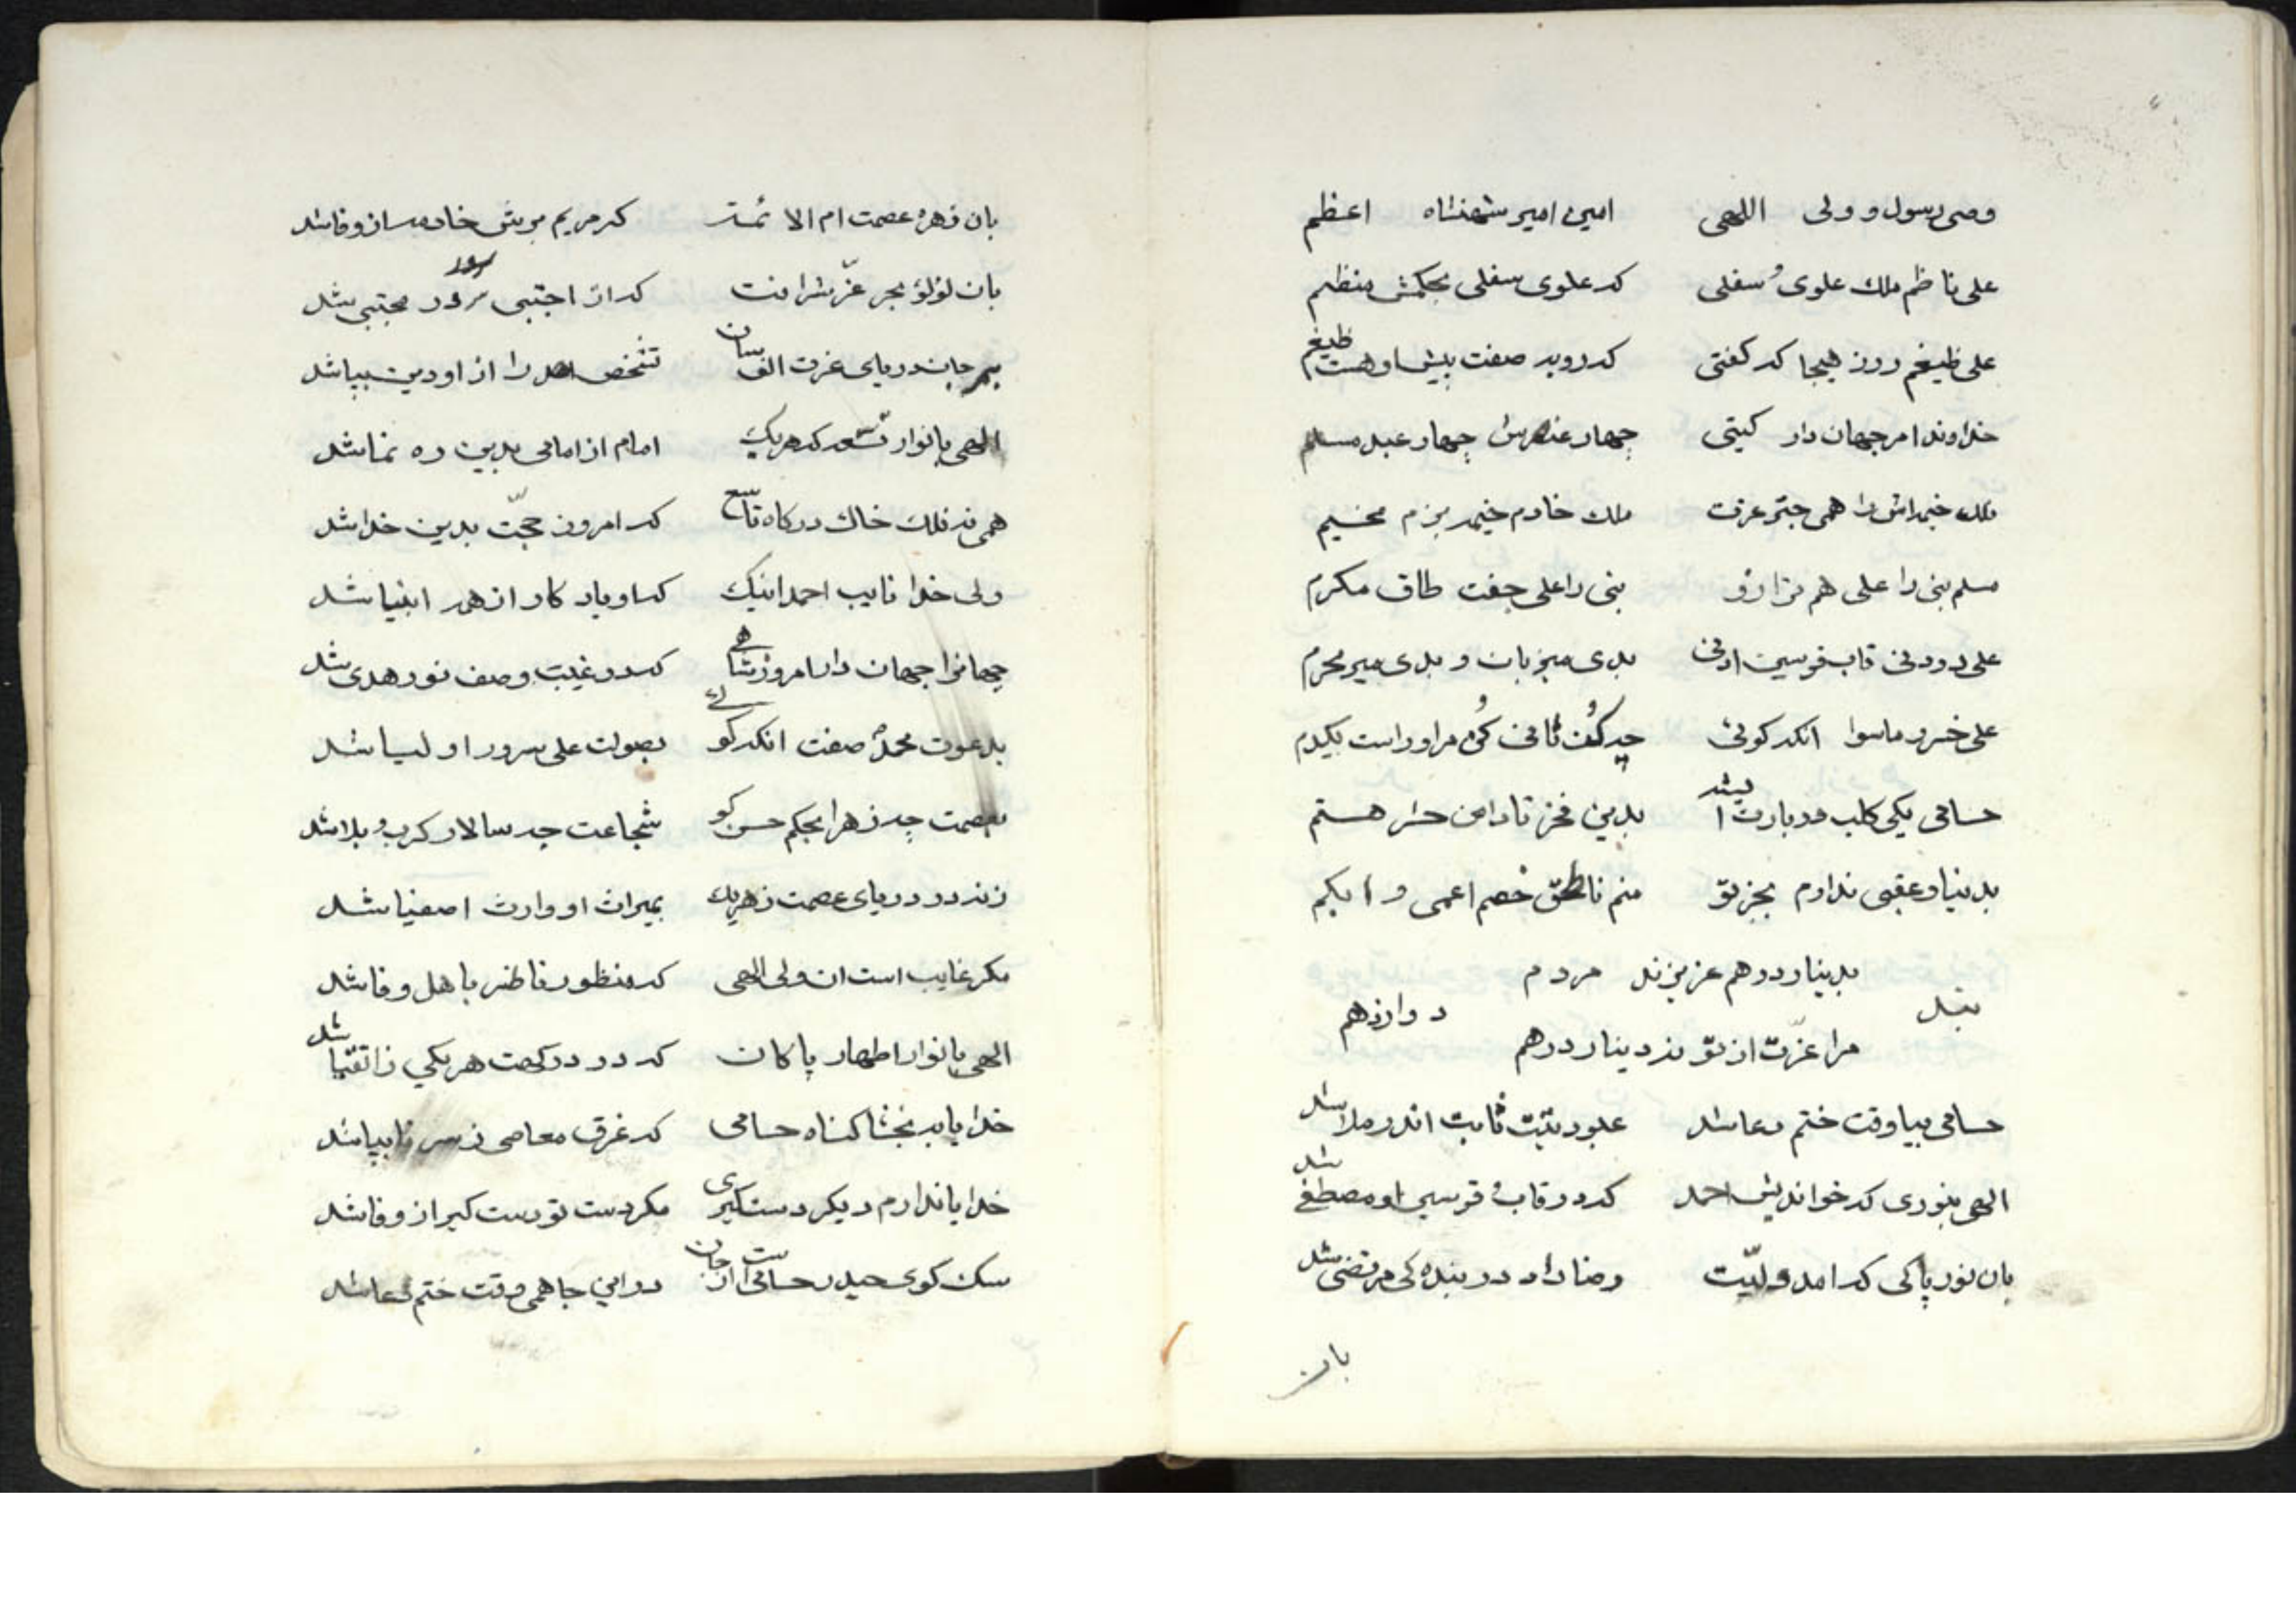 وصی رسول و ولی اللهی امین امیر شهنشاه اعظم
علی ناظم ملك علوی و سفلی كه علوی سفلی بحكمش منظم
علی ظیغم روز هیجا كه كفتی كه روبه صفت پیش او هست ظیغم
خداوند امر جهان دار كیتی چهار عنصرش چهار عبد مسلم
فلك خیمه اش را همی چتر عزت ملك خادم خیمه بزم مخیم
مسلم نبی را علی هم ترازو نبی را علی جفت طاق مكرم
علی در دنی قاب قوسین ادنی بدی میزبان و بدی میر محرم
علی خسرو ماسوا انكه كوئی چه كف ثانی كن مر او راست یكدم
حسامی یكی كلب دربارت ا بدین فخر تا دامن حشر هستم
بدنیا و عقبی ندارم بجز تو منم ناطق خصم اعمی و ابكم
بدینار درهم عزیزند مردم
بند دوازدهم
مرا عزّت از تو نه دینار درهم
حسامی بیا وقت ختم دعا شد ثابت اندر ملا شد
الهی بنوری كه خواندیش احمد كه در قاب قوسی او مصطفی شد
بان نور پاكی كه امد ولیّت رضا داد در بنده كی مرتضی شد
بان
بان زهرهٔ عصمت ام الائمه كه مریم برش خادمه از وفا شد
بان لؤلؤ بحر عزّ شرافت كه از اجتبی سرور مجتبی شد
بمرجان دریای عزت الف سان تشخص احد را از او دین بپا شد
الهی بانوار تسعه كه هریك امام از امامی بدین ره نما شد
همی نه فلك خاك دركاه تاسع كه امروز حجّت بدین خدا شد
ولی خدا نایب احمد اینك كه او یادكار از همه انبیا شد
جهانرا جهان دار امروز شاهی كه در غیبت وصف نور هدی شد
بدعوت محمد صفت انكه كوئے بصولت علی سرور اولیا شد
بعصمت چه زهرا بحكم حسن كو شجاعت چه سالار كرب و بلا شد
زنه در دریای عصمت زهر یك بمیراث او وارث اصفیا شد
مكر غایب است ان ولی الهی كه منظور ناظر باهل وفا شد
الهی بانوار اطهار پاكان كه در دركهت هر یكی ز اتقیا شد
خدایا ببخشا كناه حسامی كه غرق معاصی ز سر تا بپا شد
خدایا ندارم دیكر دست كیری مكر دست تو دست كیر از وفا شد
سك كوی حیدر حسامی است از جان در این جا همی وقت ختم دعا شد